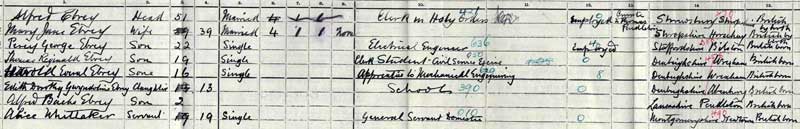 Alfred Ebrey Head 51 Married Clerk in Holy Orders Employed Shrewsbury Shrop. British by birth
Mary Jane Ebrey Wife 39 Married 4 1 1 None Shropshire British by birth
Percy George Ebrey Son 22 Single Electrical Engineer 636 Staffordshire Bilston British born
Reginald Ebrey Son 19 Single Clerk Student - Civil Service 0 Denbighshire Wrexham British born
Harold Ebrey Son 16 Single Apprentice to Mechanical Engineering 8 Denbighshire Wrexham British born
Edith Dorothy Gwendoline Ebrey Daughter 13 School 390 0 Denbighshire British born
Alfred Bache Ebrey Son 2 Lancashire Pendleton British born
Alice Whittaker Servant 19 Single General Servant Domestic 0 Montgomeryshire Newtown British born